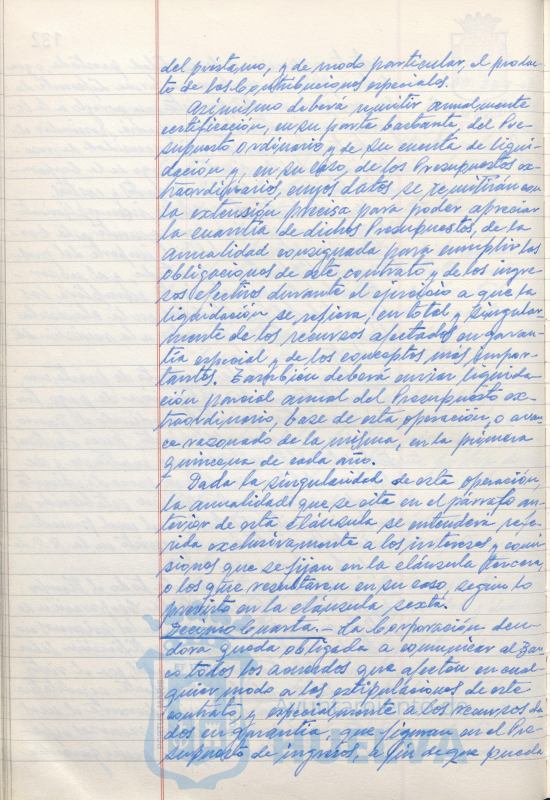 del préstamo, y de modo particular, el produc-
to de las Contribuciones especiales.
Asimismo deberá remitir anualmente
certificación, en su parte bastante, del Pre-
supuesto Ordinario y de su cuenta de liqui-
dación y, en su caso, de los Presupuestos ex-
traordinarios, cuyos datos se remitirán con
la extensión precisa para poder apreciar
la cuantía de dichos Presupuestos, de la
anualidad consignada para cumplir las
obligaciones de este contrato y de los ingre-
sos efectivos durante el ejercicio a que la
liquidación se refiera, en total y singular-
mente de los recursos afectados en garan-
tía especial y de los conceptos más impor-
tantes. También deberá enviar liquida-
ción parcial anual del Presupuesto ex-
traordinario, base de esta operación, o avan-
ce razonado de la misma, en la primera
quincena de cada año.
Dada la singularidad de esta operación,
la anualidad que se cita en el párrafo an-
terior de esta Cláusula se entenderá refe-
rida exclusivamente a los intereses y comi-
siones que se fijan en la cláusula tercera,
o los que resultaren en su caso, según lo
previsto en la cláusula sexta.
Décimo Cuarta.- La Corporación deu-
dora queda obligada a comunicar al Ban-
co todos los acuerdos que afecten en cual-
quier modo a las estipulaciones de este
contrato y especialmente a los recursos da-
dos en garantía, que figuran en el Pre-
supuesto de ingresos, a fin de que pueda